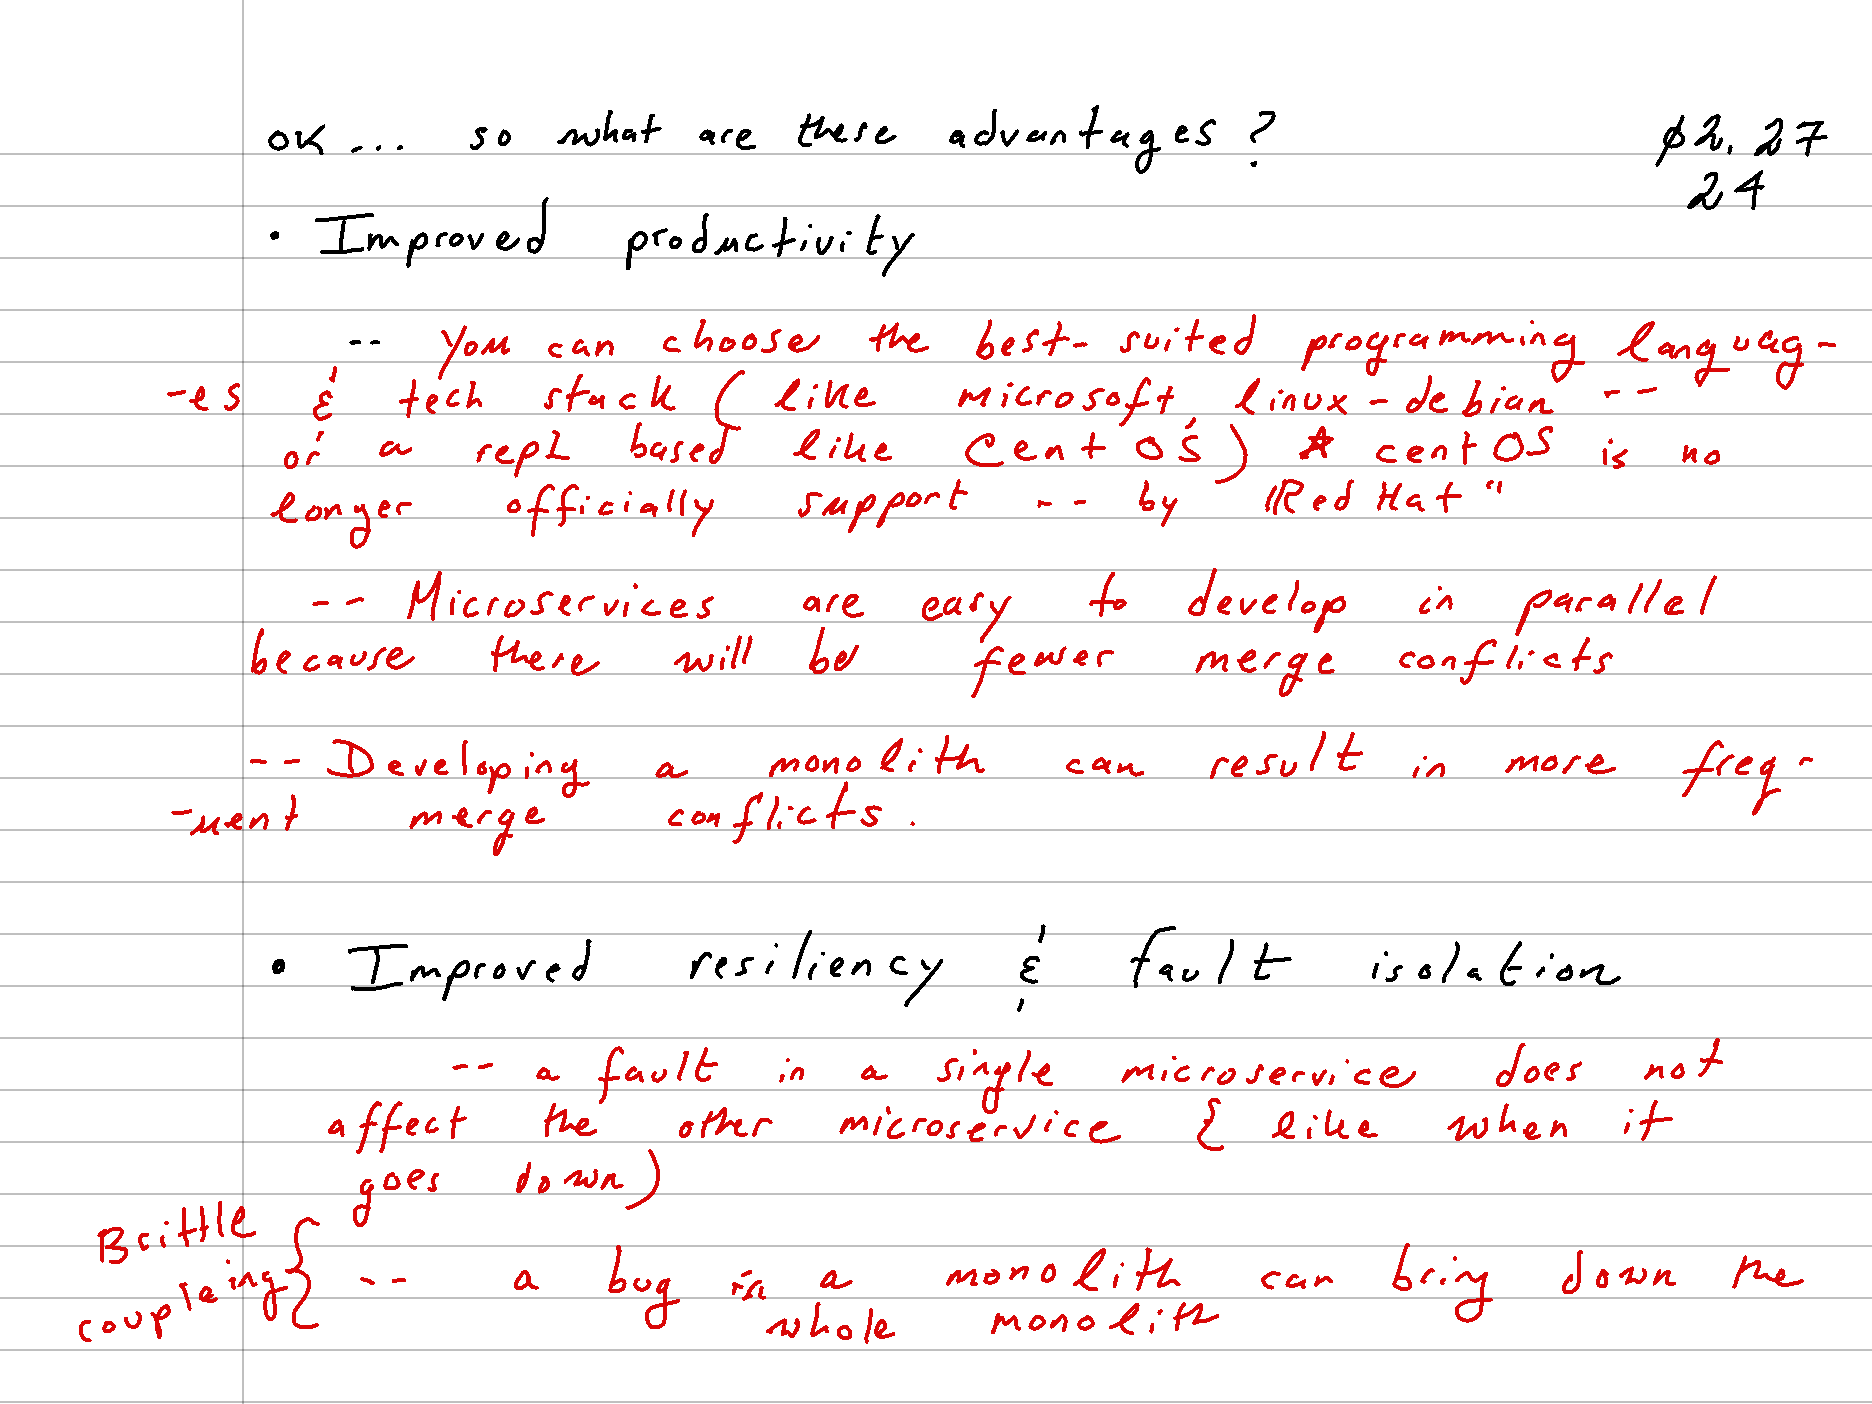 OK ... so what are these advantages?
ø2.27
24
• Improved productivity
-- You can choose the best-suited programming languag-
-es & tech stack (like microsoft, linux-debian --
or a repL based like CentOS) * centOS is no
longer officially support -- by "Red Hat"
-- Microservices are easy to develop in parallel
because there will be fewer merge conflicts
-- Developing a monolith can result in more freq-
-uent merge conflicts.
• Improved resiliency & fault isolation
-- a fault in a single microservice does not
affect the other microservice { like when it
goes down)
Brittle
coupleing
{ -- a bug in a monolith can bring down the
whole monolith